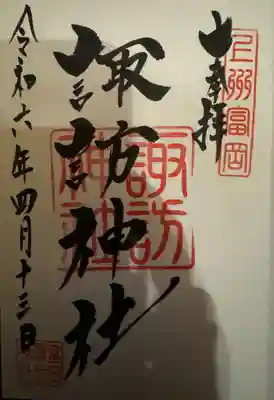 上州富岡
奉拝
諏訪神社
諏訪
神社
令和六年四月十三日